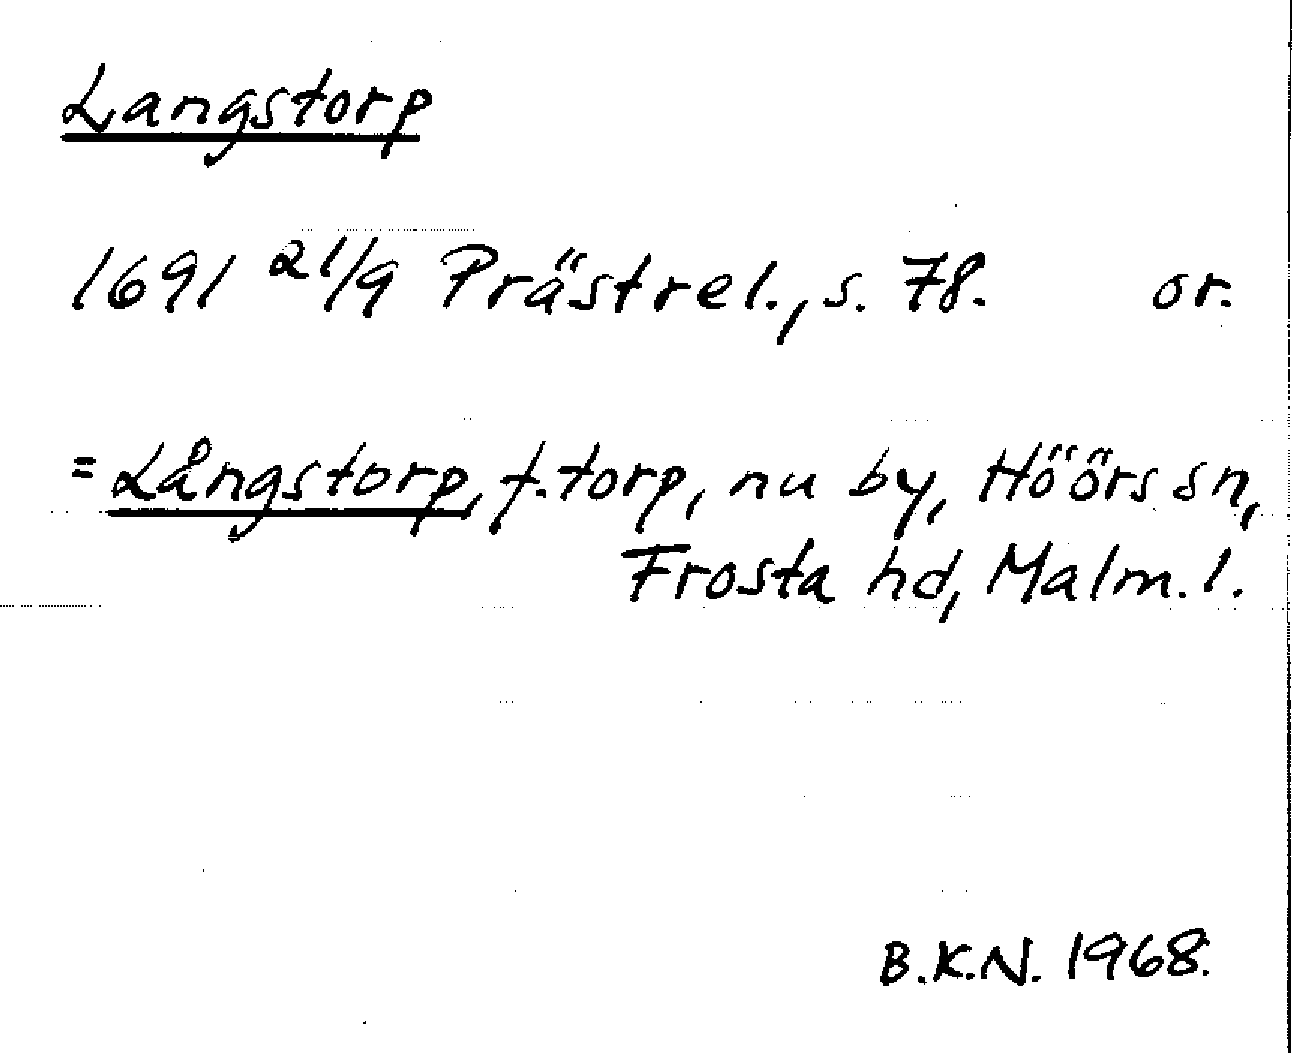 Langstorp
1691 21/9 Prästrel., s. 78. or.
= Långstorp, f. torp, nu by, Höörs sn,
Frosta hd, Malm. l.
B.K.N. 1968.